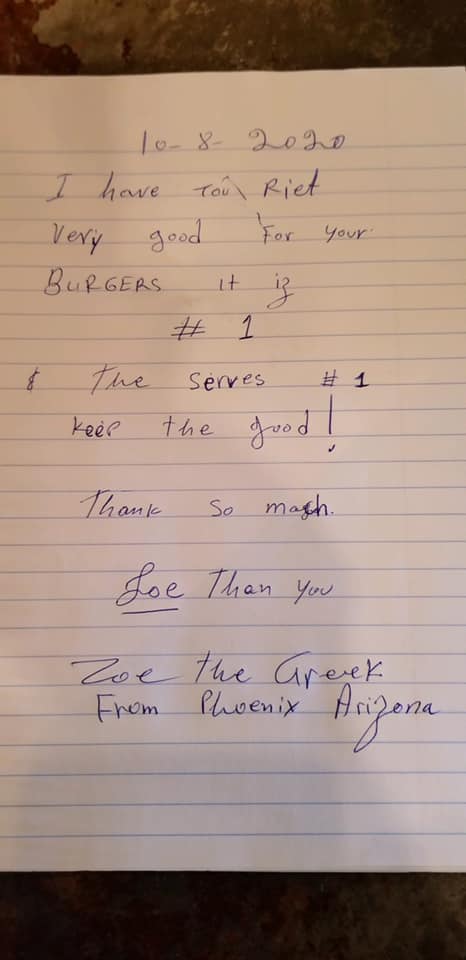 10-8-2020
I have Riet
Very good For your
BURGERS it iz
# 1
& The serves # 1
keep the good!
Thank so mach.
Joe Than you
Zoe the Greek
From Phoenix Arizona